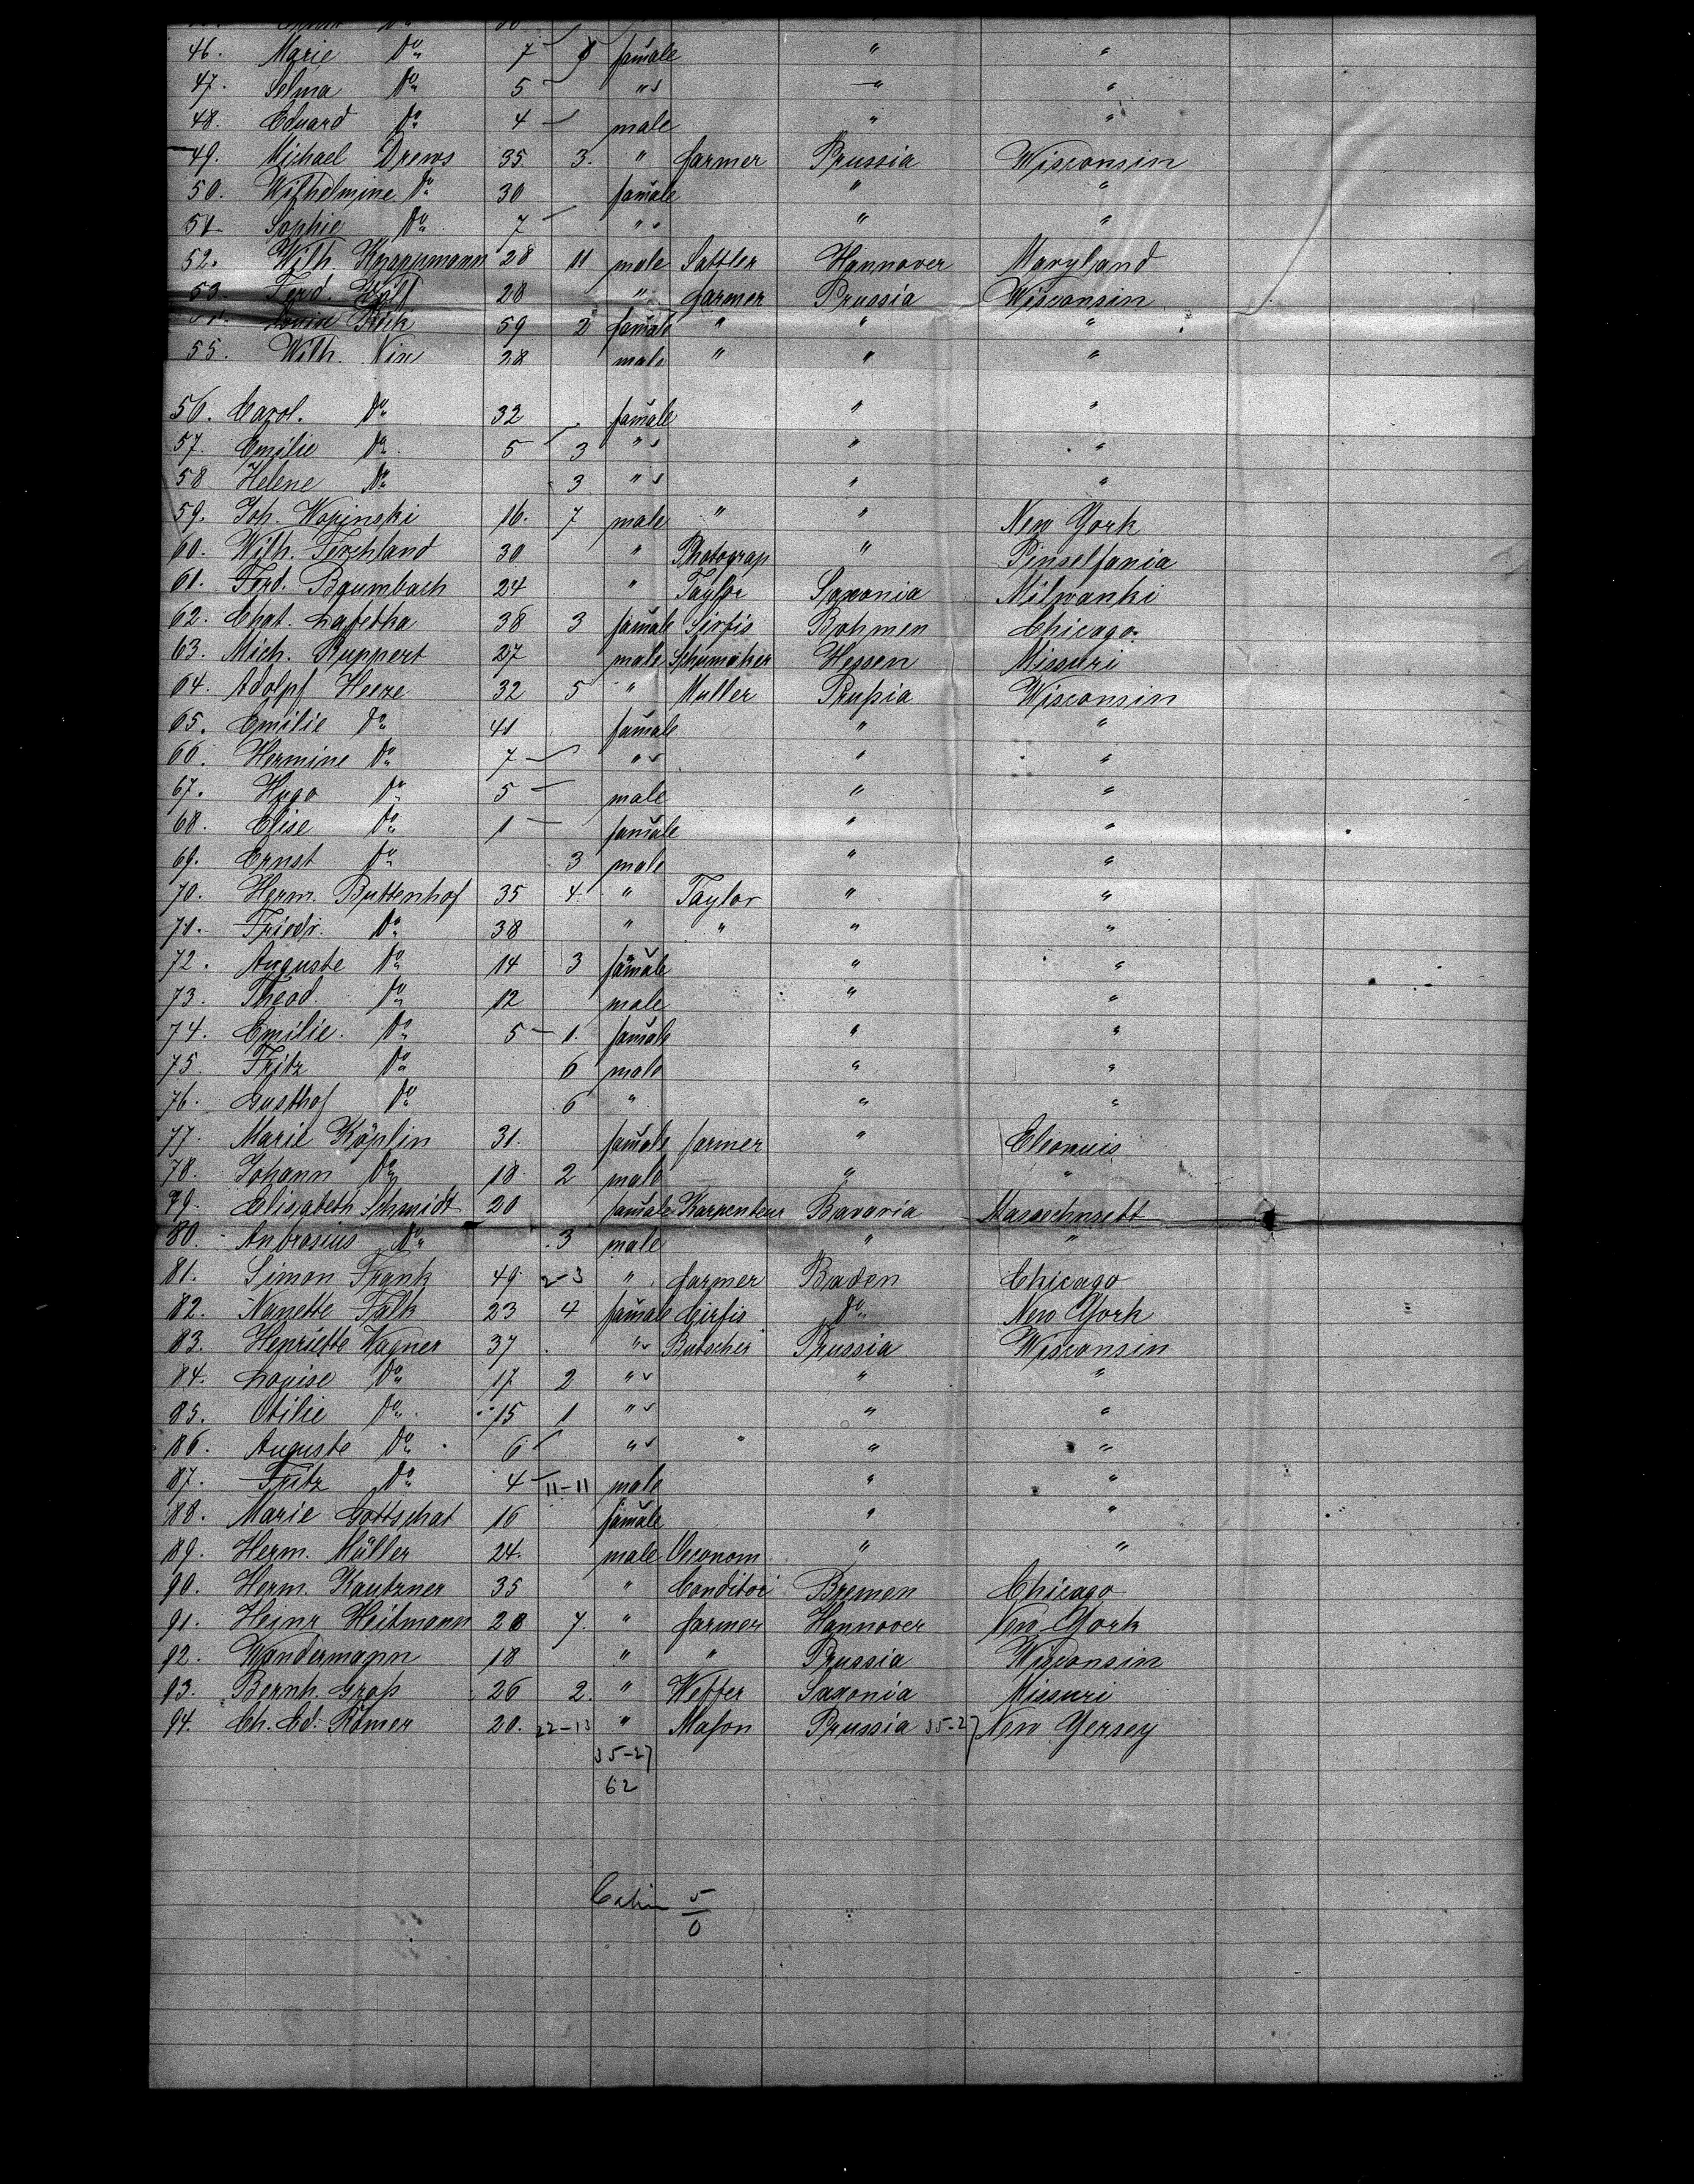 46. Marie Do 7 female " "
47. Selma Do 5 " " "
48. Eduard Do 4 male " "
49. Michael Drews 35 3. " farmer Prussia Wisconsin
50. Wilhelmine Do 30 female " "
51. Sophie Do 7 " " "
52. Wilh. Knappmann 28 11 male Sattler Hannover Maryland
53. Ferd. 28 " farmer Prussia Wisconsin
59 2 female " " "
55. Wilh. 28 male " " "
56. Carol. Do 32 female " "
57. Emilie Do 5 3 " " "
58 Helene Do 3 " " "
59. Joh. Wopinski 16. 7 male " " New York
60. Wilh. Terchland 30 " Photograp " Pinselfania
61. Ferd. Baumbach 24 " Taylor Saxonia Milwanki
62. Chat. Lafetha 38 3 female Sirfis Bohmen Chicago.
63. Mich. Ruppert 27 male Schumaker Hessen Missuri
64. Adolpf Heeze 32 5 " Muller Prußia Wisconsin
65. Emilie Do 41 female " "
66. Hermine Do 7 " " "
67. Hugo Do 5 male " "
68. Elise Do 1 female " "
69. Ernst Do 3 male " "
70. Herm. Buttenhof 35 4. " Taylor " "
71. Friedr. Do 38 " " " "
72. Auguste Do 14 3 female " "
73. Theod. Do 12 male " "
74. Emilie. Do 5 1. female " "
75. Fritz Do 6 male " "
76. Gusthof Do 6 " " "
77. Marie Köplin 31. female farmer "
78. Johann Do 18. 2 male " "
79. Elisabeth Schmidt 20 female Karpenteur Bavaria Massechusett
80. Ambrosius Do 3 male " "
81. Simon Frank 49. 2-3 " farmer Baden Chicago
82. Nanette Falk 23 4 female Cirfis Do New York
83. Henriette Wagner 37 " Butscher Prussia Wisconsin
84. Louise Do 17 2 " " "
85. Otilie Do 15 1 " " "
86. Auguste Do 6 " " " "
87. Fritz Do 4 11-11 male " "
88. Marie Gottschat 16 female " "
89. Herm. Müller 24. male Oeconom " "
90. Herm. Kautzner 35 " Conditor Bremen Chicago
91. Heinr. Heitmann 28 7. " farmer Hannover New York
92. Wandermann 18 " " Prussia Wisconsin
93. Bernh. Groß 26 2. " Weffer Saxonia Missuri
94. Ch. Ed. Römer 20. 22-13 " Mason Prussia 35-27 New Yersey
35-27
62
Cabin 5
0